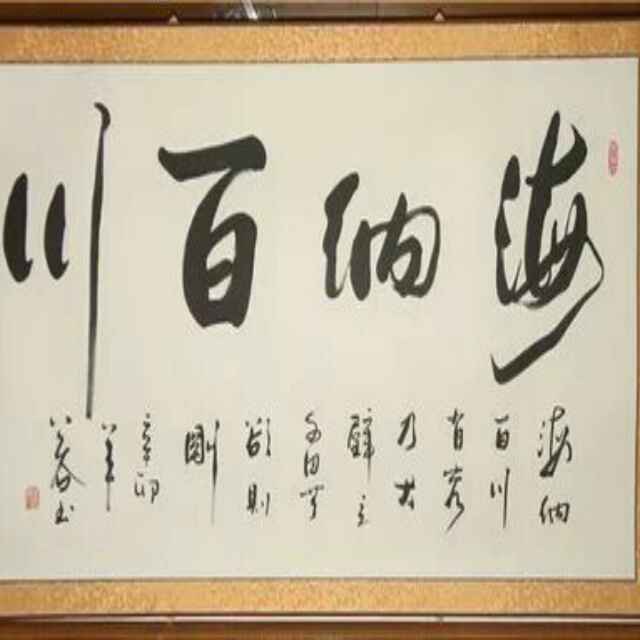 海纳百川
海纳
百川
有容
乃大
壁立
欲则
刚
辛卯
年
春书